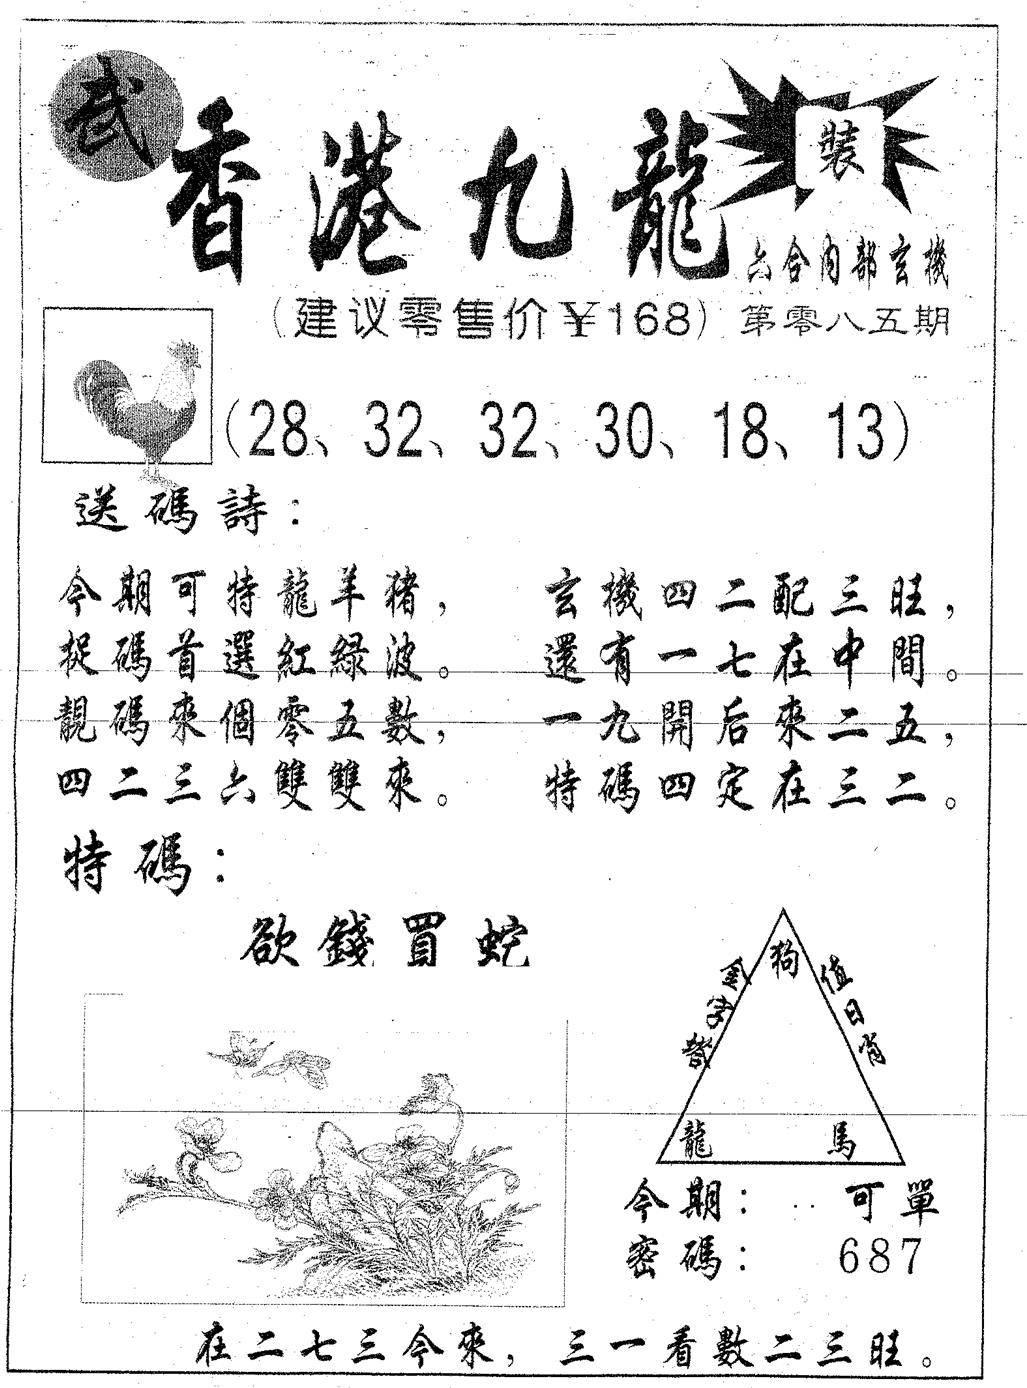 武
香港九龍
裝
六合內部玄機
(建议零售价￥168) 第零八五期
(28、32、32、30、18、13)
送碼詩：
今期可特龍羊豬，
捉碼首選紅綠波。
靚碼來個零五數，
四二三六雙雙來。
玄機四二配三旺，
還有一七在中間。
一九開后來二五，
特碼四定在三二。
特碼：
欲錢買蛇
金字塔
狗
值日肖
龍 馬
今期： 可單
密碼： 687
在二七三今來，三一看數二三旺。